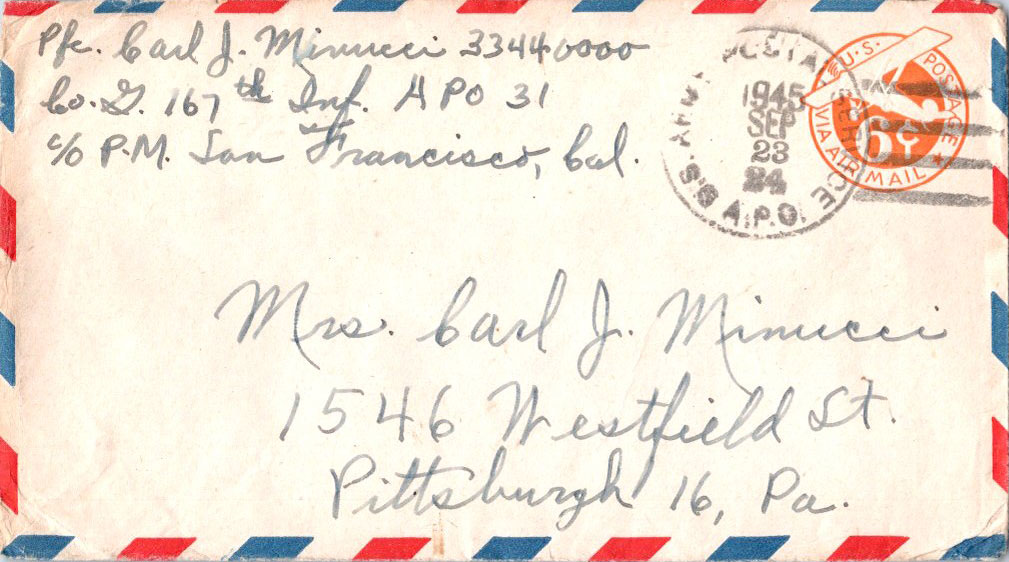 Pfc. Carl J. Minucci 33440000
Co. G. 167th Inf. APO 31
c/o P.M. San Francisco, Cal.
U.S. POSTAGE
6¢
VIA AIR MAIL
POSTAL SERVICE
1945
SEP
23
A.P.O.
Mrs. Carl J. Minucci
1546 Westfield St.
Pittsburgh 16, Pa.